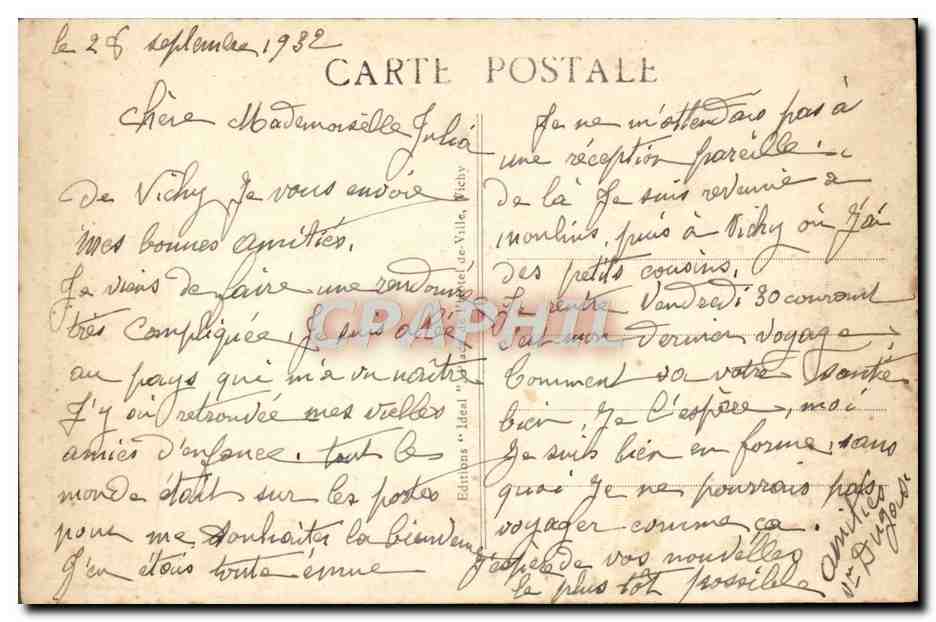 le 28 septembre 1932
CARTE POSTALE
Chère Mademoiselle Julia
De Vichy, Je vous envoie
mes bonnes amitiés.
Je viens de faire une randonné
très compliquée, Je suis allée
au pays qui m'a vu naître
J'y ai retrouvée mes vielles
amies d'enfance. tout le
monde était sur les portes
pour me souhaiter la bienvenue
J'en étais toute émue
Editions "Idéal" de-Ville, Vichy
CPAPHIL
Je ne m'attendais pas à
une réception pareille.
de là Je suis revenue a
moulins, puis à Vichy où J'ai
des petits cousins.
Je rentre Vendredi 30 courant
c'est mon dernier voyage
Comment va votre santé
bien, Je l'espère, moi
Je suis bien en forme, sans
quoi Je ne pourrais pas
voyager comme ça.
J'espère de vos nouvelles
le plus tôt possible
amitiés